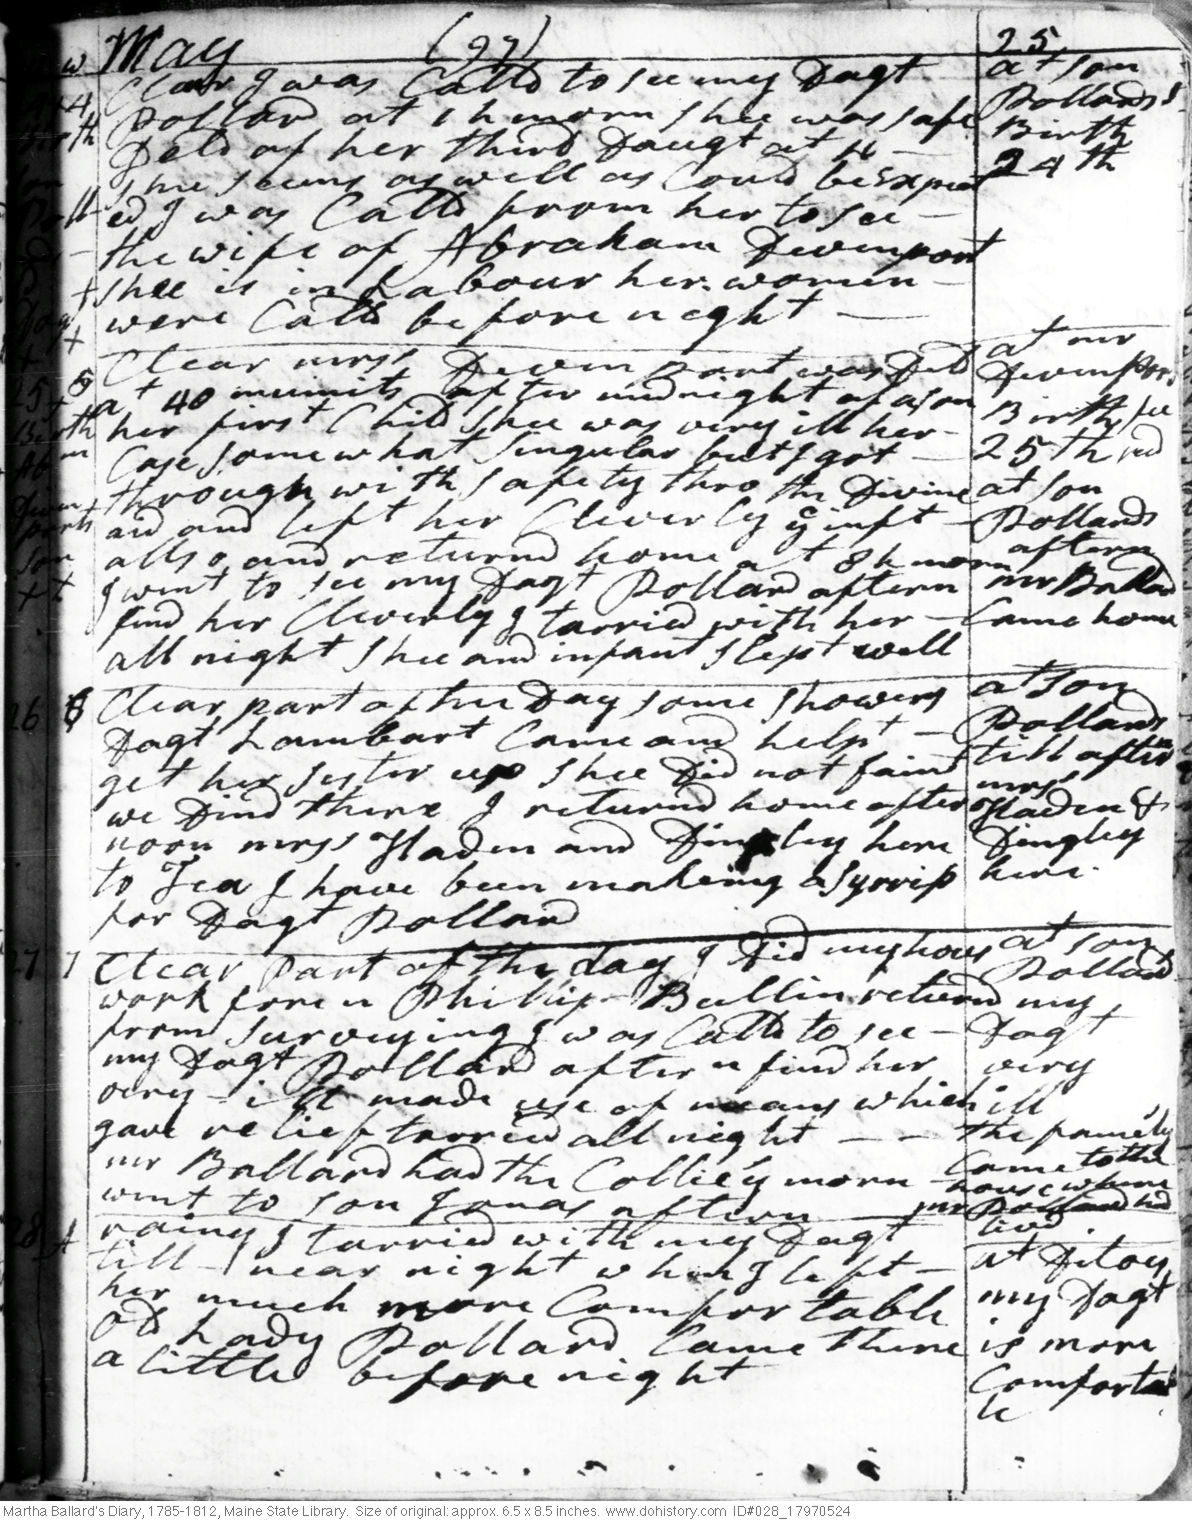 May (97) 25
Clear I was Calld to see my Dagt
Pollard at 1 h morn shee was safe
Deld of her third Daugt at 11 —
shee seems as well as Could be Expect
ed I was Calld from her to see —
the wife of Abraham Devenport
shee is in Labour her women —
were Calld before night —
at son
Pollards
Birth
24th
25
Birth
Clear mrss Devenport was Deld
at 40 munits after midnight of a son
her first Child shee was very ill her
Case somewhat singular but I got —
through with safety thro the Divine
aid and left her Cleverly & inft —
allso and returnd home at 8 h morn
I went to see my Dagt Pollard aftern
find her Cleverly I tarried with her —
all night shee and infant slept well
at mr
Devenports
Birth
25th
at son
Pollards
aftern
mr Ballard
Came home
26
Clear part of the Day some showers
Dagt Lambart Came and helpt —
get her sister up shee Did not faint
we Dind there I returnd home after
noon mrss Haden and Dingley here
to Tea I have been making a syrrip
for Dagt Pollard
at son
Pollards
till aftern
mrss
Haden &
Dingley
here.
27 7
Clear part of the day I Did my hous
work fore n Phillip Bullin returnd
from surveying I was Calld to see —
my Dagt Pollard after n find her
very — ill made use of means which
gave relief tarried all night — —
mr Ballard had the Collic y morn
went to son Jonas aftern
at son
Pollards
my
Dagt
very
ill
the family
Came to the
house where
mr Pollard had
livd.
28 A
rainy I tarried with my Dagt
till near night when I left —
her much more Comfortable
Old Lady Pollard Came there
a little before night
at Ditoes
my Dagt
is more
Comfortab
le
Martha Ballard's Diary, 1785-1812, Maine State Library. Size of original: approx. 6.5 x 8.5 inches. www.dohistory.com ID#028_17970524